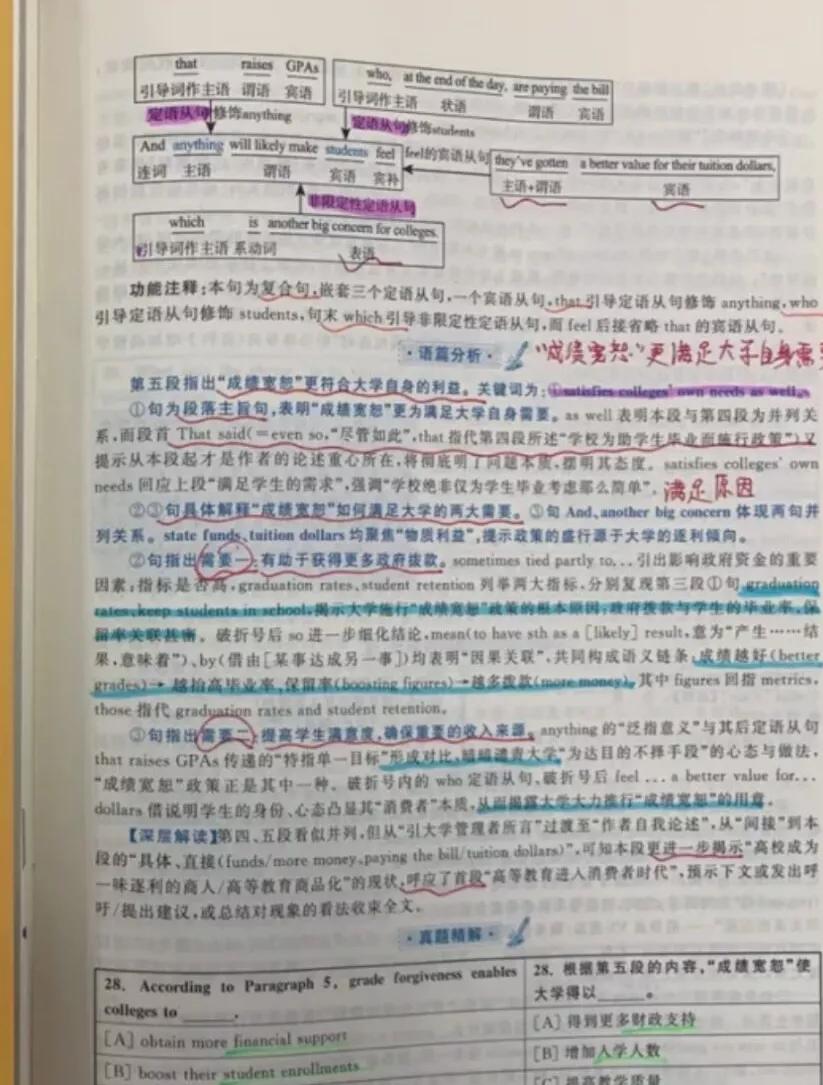 that raises GPAs
引导词作主语 谓语 宾语
who, at the end of the day, are paying the bill
引导词作主语 状语 谓语 宾语
定语从句修饰anything
定语从句修饰students
And anything will likely make students feel
连词 主语 谓语 宾语 宾补
feel的宾语从句
they've gotten a better value for their tuition dollars,
主语+谓语 宾语
非限定性定语从句
which is another big concern for colleges.
引导词作主语 系动词 表语
功能注释:本句为复合句,嵌套三个定语从句,一个宾语从句,that 引导定语从句修饰 anything,who
引导定语从句修饰 students,句末 which 引导非限定性定语从句,而 feel 后接省略 that 的宾语从句。
·语篇分析·
"成绩宽恕"更满足大学自身需要
第五段指出“成绩宽恕”更符合大学自身的利益。关键词为:①satisfies colleges' own needs as well。
①句为段落主旨句,表明“成绩宽恕”更为满足大学自身需要。as well 表明本段与第四段为并列关
系,而段首 That said(=even so,“尽管如此”,that 指代第四段所述“学校为助学生毕业而施行政策”)又
提示从本段起才是作者的论述重心所在,将彻底明了问题本质,摆明其态度。satisfies colleges' own
needs 回应上段“满足学生的需求”,强调“学校绝非仅为学生毕业考虑那么简单”。满足原因
②③句具体解释“成绩宽恕”如何满足大学的两大需要。③句 And、another big concern 体现两句并
列关系。state funds、tuition dollars 均聚焦“物质利益”,提示政策的盛行源于大学的逐利倾向。
②句指出需要一:有助于获得更多政府拨款。sometimes tied partly to... 引出影响政府资金的重要
因素:指标是否高,graduation rates、student retention 列举两大指标,分别复现第三段①句 graduation
rates、keep students in school,揭示大学施行“成绩宽恕”政策的根本原因:政府拨款与学生的毕业率、保
留率关联甚密。破折号后 so 进一步细化结论,mean(to have sth as a [likely] result,意为“产生……结
果,意味着”)、by(借由[某事达成另一事])均表明“因果关联”,共同构成语义链条:成绩越好(better
grades)→ 越抬高毕业率、保留率(boosting figures)→越多拨款(more money)。其中 figures 回指 metrics,
those 指代 graduation rates and student retention.
③句指出需要二:提高学生满意度,确保重要的收入来源。anything 的“泛指意义”与其后定语从句
that raises GPAs 传递的“特指单一目标”形成对比,暗暗谴责大学“为达目的不择手段”的心态与做法,
“成绩宽恕”政策正是其中一种。破折号内的 who 定语从句、破折号后 feel ... a better value for...
dollars 借说明学生的身份、心态凸显其“消费者”本质,从而揭露大学大力推行“成绩宽恕”的用意。
【深层解读】第四、五段看似并列,但从“引大学管理者所言”过渡至“作者自我论述”,从“间接”到本
段的“具体、直接(funds/more money、paying the bill/tuition dollars)”,可知本段更进一步揭示“高校成为
一味逐利的商人/高等教育商品化”的现状,呼应了首段“高等教育进入消费者时代”,预示下文或发出呼
吁/提出建议,或总结对现象的看法收束全文。
·真题精解·
28. According to Paragraph 5, grade forgiveness enables
colleges to ______.
28. 根据第五段的内容,“成绩宽恕”使
大学得以______。
[A] obtain more financial support
[A] 得到更多财政支持
[B] boost their student enrollments
[B] 增加入学人数
[C] 提高教学质量